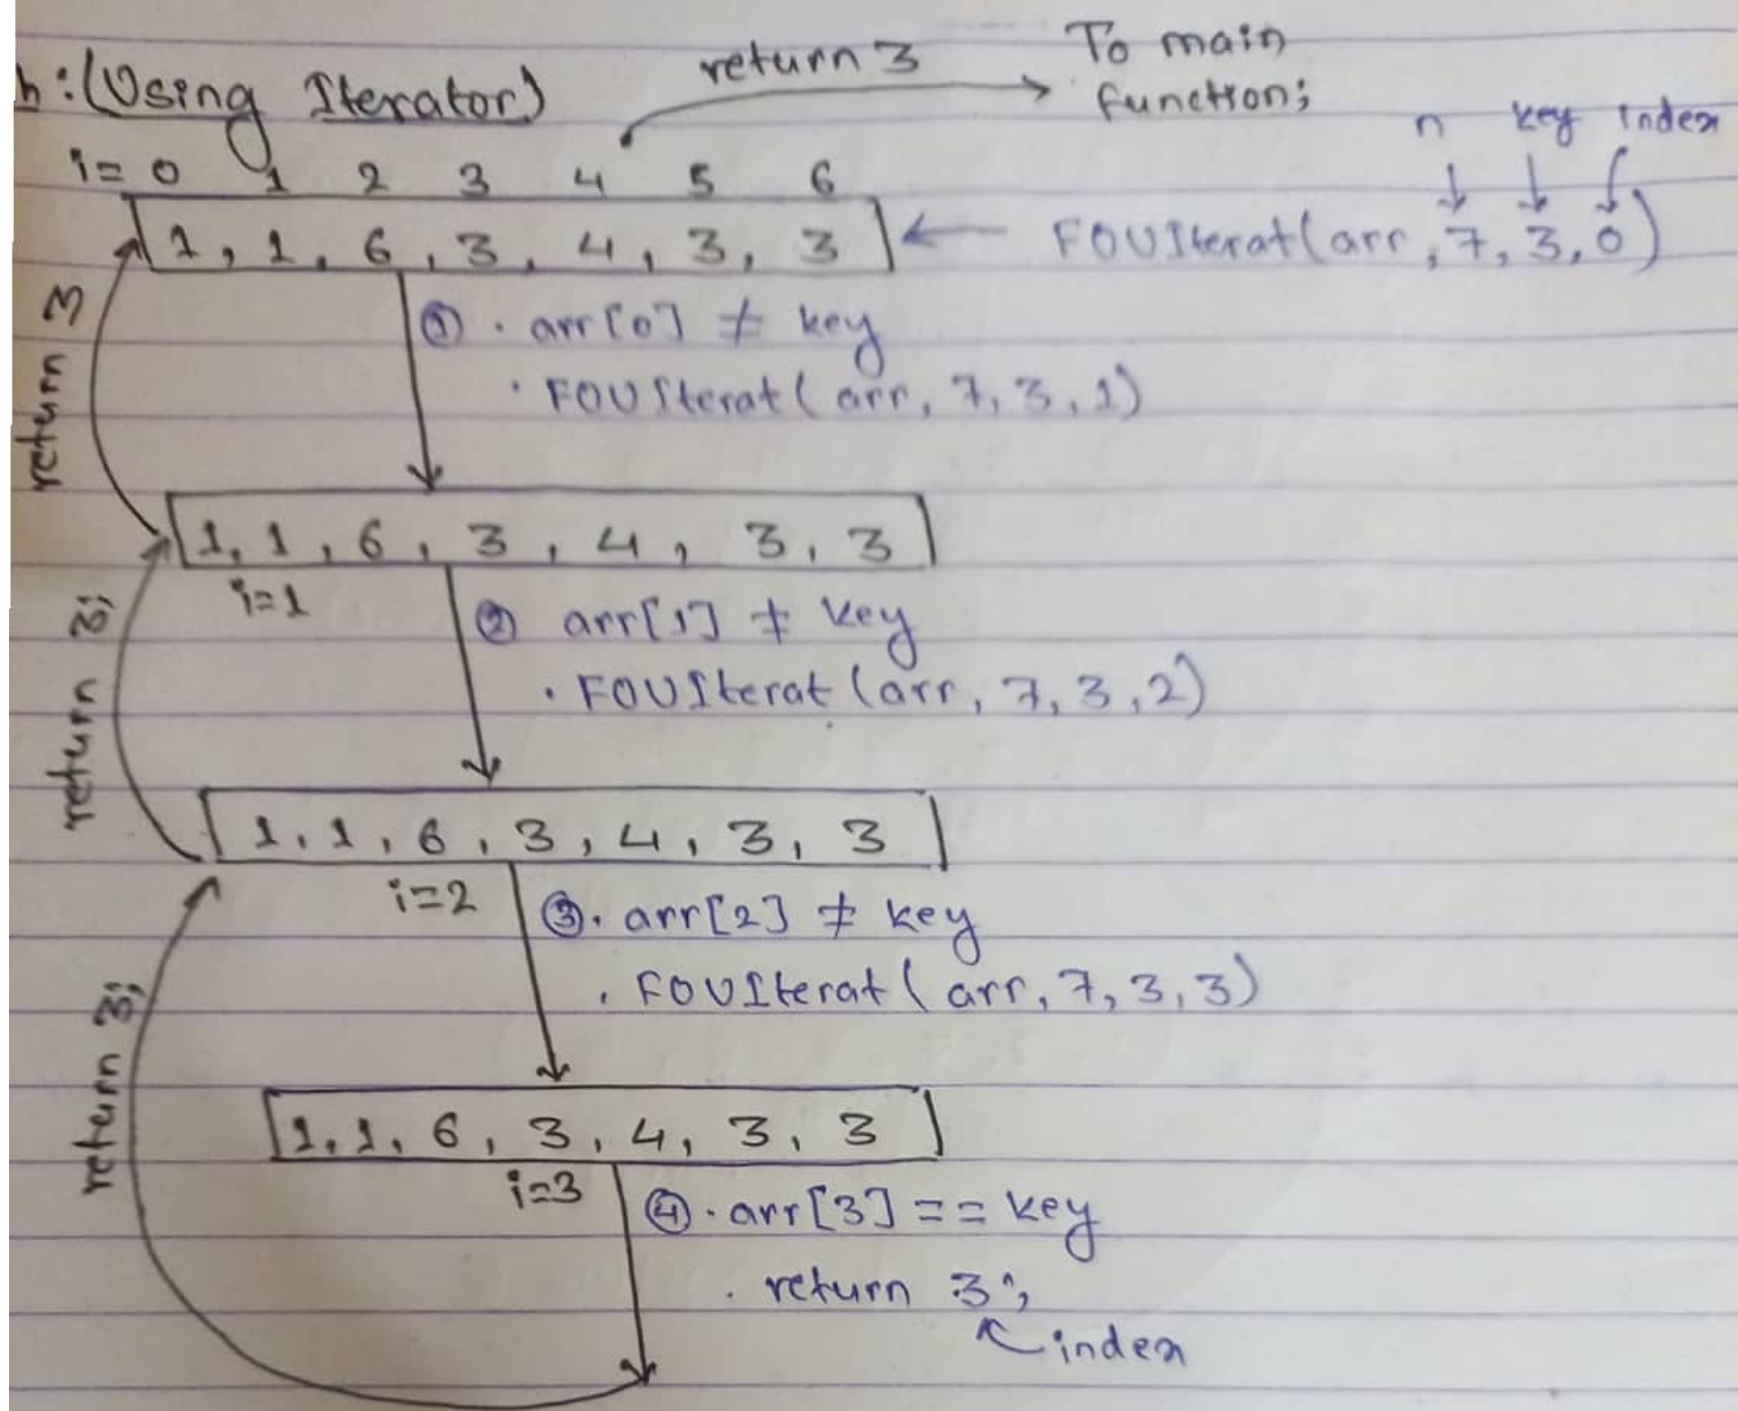 h:(Using Iterator)
return 3
To main
function;
n key index
i= 0 1 2 3 4 5 6
[1, 1, 6, 3, 4, 3, 3] ← FOUIterat(arr, 7, 3, 0)
return 3
① . arr[0] ≠ key
. FOUIterat(arr, 7, 3, 1)
[1, 1, 6, 3, 4, 3, 3]
i=1
return 3;
② arr[1] ≠ key
. FOUIterat(arr, 7, 3, 2)
[1, 1, 6, 3, 4, 3, 3]
i=2
③. arr[2] ≠ key
. FOUIterat(arr, 7, 3, 3)
return 3;
[1, 1, 6, 3, 4, 3, 3]
i=3
④. arr[3] == key
. return 3;
index